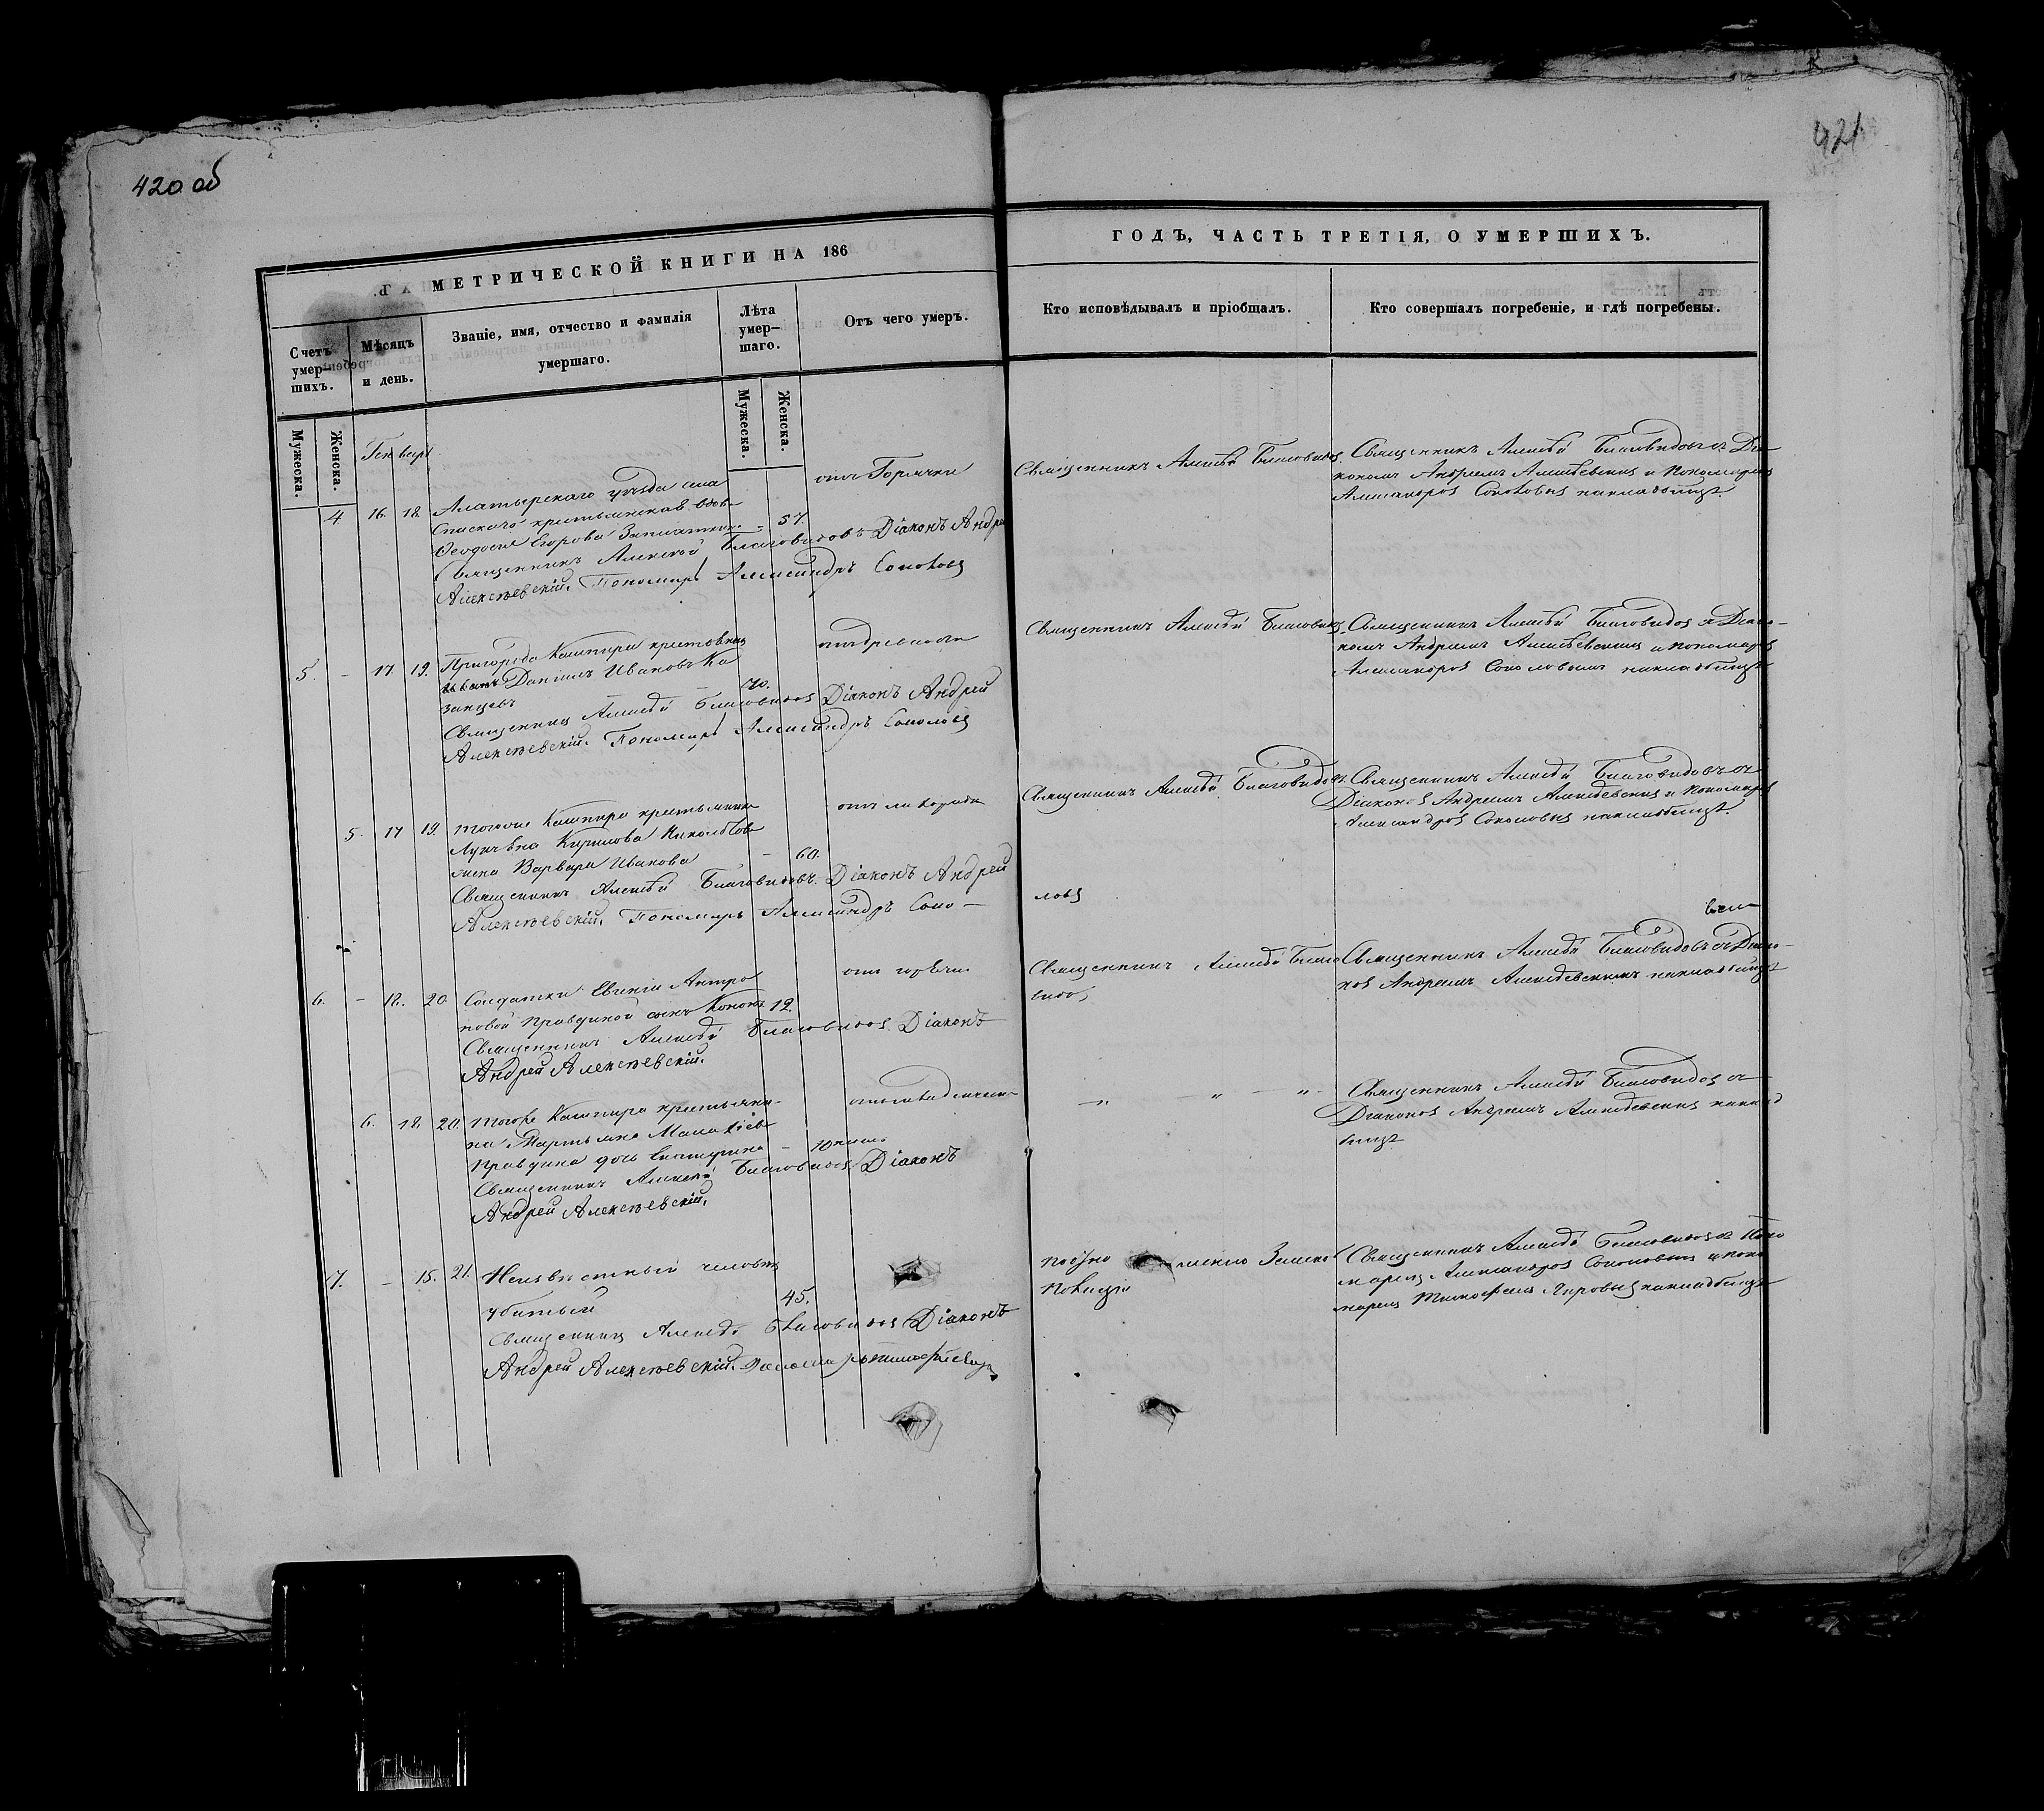 420 об
421
МЕТРИЧЕСКОЙ КНИГИ НА 186
ГОДЪ, ЧАСТЬ ТРЕТІЯ, О УМЕРШИХЪ.
Счетъ умер—шихъ.
Мѣсяцъ и день.
Званіе, имя, отчество и фамилія
умершаго.
Лѣта умер—шаго.
Отъ чего умеръ.
Кто исповѣдывалъ и пріобщалъ.
Кто совершалъ погребеніе, и гдѣ погребены.
Мужеска.
Женска.
Мужеска.
Женска.
Генварь
4 16. 18. Алатырскаго уѣзда села
Спаскаго крестьянская вдова
Ѳеодосія Егорова - 57.
Священникъ Алексѣй Благовидовъ Діаконъ Андрей
Алексѣевскій. Пономарь Александръ Соколовъ
отъ Горячки
Священникъ Алексѣй Благовидовъ
Священникъ Алексѣй Благовидовъ съ Діа
кономъ Андреемъ Алексѣевскимъ и Пономаремъ
Александромъ Соколовымъ на кладбищѣ
5. - 17. 19. Пригорода Кашпира
Даніилъ Ивановъ Ка
занцевъ 70.
Священникъ Алексѣй Благовидовъ Діаконъ Андрей
Алексѣевскій. Пономарь Александръ Соколовъ
отъ древности
Священникъ Алексѣй Благовидовъ
Священникъ Алексѣй Благовидовъ съ Діако-
номъ Андреемъ Алексѣевскимъ и пономаремъ
Александромъ Соколовымъ на кладбищѣ
5. 17 19. Тогоже Кашпира крестьянина
Кирилова
жена Варвара Иванова - 60.
Священникъ Алексѣй Благовидовъ. Діаконъ Андрей
Алексѣевскій. Пономарь Александръ Соко-
ловъ
отъ лихорадки
Священникъ Алексѣй Благовидовъ
Священникъ Алексѣй Благовидовъ съ
Діакономъ Андреемъ Алексѣевскимъ и пономаремъ
Александромъ Соколовымъ на кладбищѣ.
6. - 18. 20. Солдатки Евгеніи Антро
повой Правдиной сынъ Кононъ 12.
Священникъ Алексѣй Благовидовъ Діаконъ
Андрей Алексѣевскій.
отъ горячки
Священникъ Алексѣй Благо
видовъ
Священникъ Алексѣй Благовидовъ съ Діако-
номъ Андреемъ Алексѣевскимъ на кладбищѣ
6. 18. 20. Тогоже Кашпира крестьяни-
на Мартьяна
Правдина дочь Екатерина -
Священникъ Алексѣй Благовидовъ Діаконъ
Андрей Алексѣевскій.
— „ „ - „ -
Священникъ Алексѣй Благовидовъ съ
Діакономъ Андреемъ Алексѣевскимъ на клад
бищѣ
7. - 15. 21. Неизвѣстный человѣкъ
убитый 45.
Священникъ Алексѣй Благовидовъ Діаконъ
Андрей Алексѣевскій.
Земской
Полиціи
Священникъ Алексѣй Благовидовъ съ Поно
маремъ Александромъ Соколовымъ и поно
маремъ на кладбищѣ